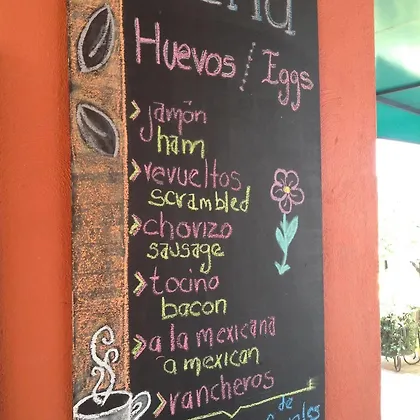 Huevos / Eggs
jamón
ham
revueltos
scrambled
chorizo
sausage
tocino
bacon
a la mexicana
a mexican
rancheros
de